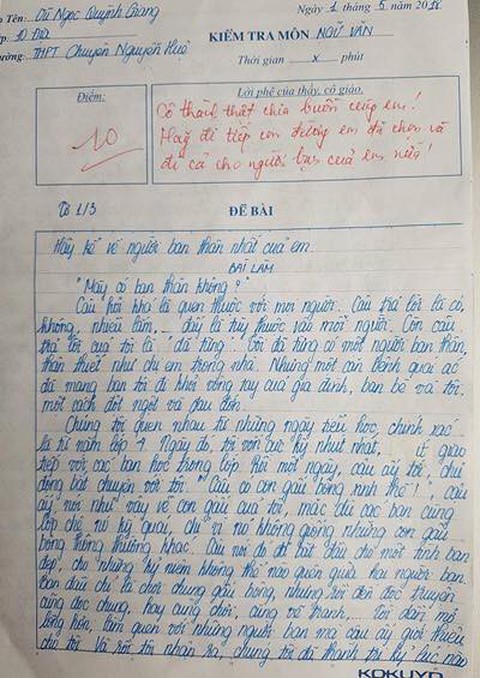 Tên: Vũ Ngọc Quỳnh Giang
Ngày 1 tháng 5 năm 2018
10 D10
KIỂM TRA MÔN NGỮ VĂN
Trường: THPT Chuyên Nguyễn Huệ
Thời gian x phút
Điểm:
Lời phê của thầy, cô giáo.
10
Cô thành thật chia buồn cùng em!
Hãy đi tiếp con đường em đã chọn và
đi cả cho người bạn của em nữa!
Tờ 1/3
ĐỀ BÀI
Hãy kể về người bạn thân nhất của em
BÀI LÀM
"Mày có bạn thân không?"
Câu hỏi khá là quen thuộc với mọi người. Câu trả lời là có,
không, nhiều lắm,... đấy là tùy thuộc vào mỗi người. Còn câu
trả lời của tôi là "đã từng". Tôi đã từng có một người bạn thân,
thân thiết như chị em trong nhà. Nhưng một căn bệnh quái ác
đã mang bạn tôi đi khỏi vòng tay của gia đình, bạn bè và tôi
một cách đột ngột và đau đớn.
Chúng tôi quen nhau từ những ngày tiểu học, chính xác
là từ năm lớp 4. Ngày đó, tôi vốn cực kỳ nhút nhát, ít giao
tiếp với các bạn học trong lớp. Rồi một ngày, cậu ấy tới, chủ
động bắt chuyện với tôi: "Cậu có con gấu bông xinh thế!", cậu
ấy nói như vậy về con gấu của tôi, mặc dù các bạn cùng
lớp chê nó kỳ quái, chỉ vì nó không giống những con gấu
bông thông thường khác. Câu nói đó đã bắt đầu cho một tình bạn
đẹp, cho những kỷ niệm không thể nào quên giữa hai người bạn.
Ban đầu chỉ là chơi chung gấu bông, nhưng rồi đến đọc truyện
cũng đọc chung, hay cùng chơi, cùng vẽ tranh,... Tôi dần mở
lòng hơn, làm quen với những người bạn mà cậu ấy giới thiệu
cho tôi. Và rồi tôi nhận ra, chúng tôi đã thành tri kỷ lúc nào
KOKUYO